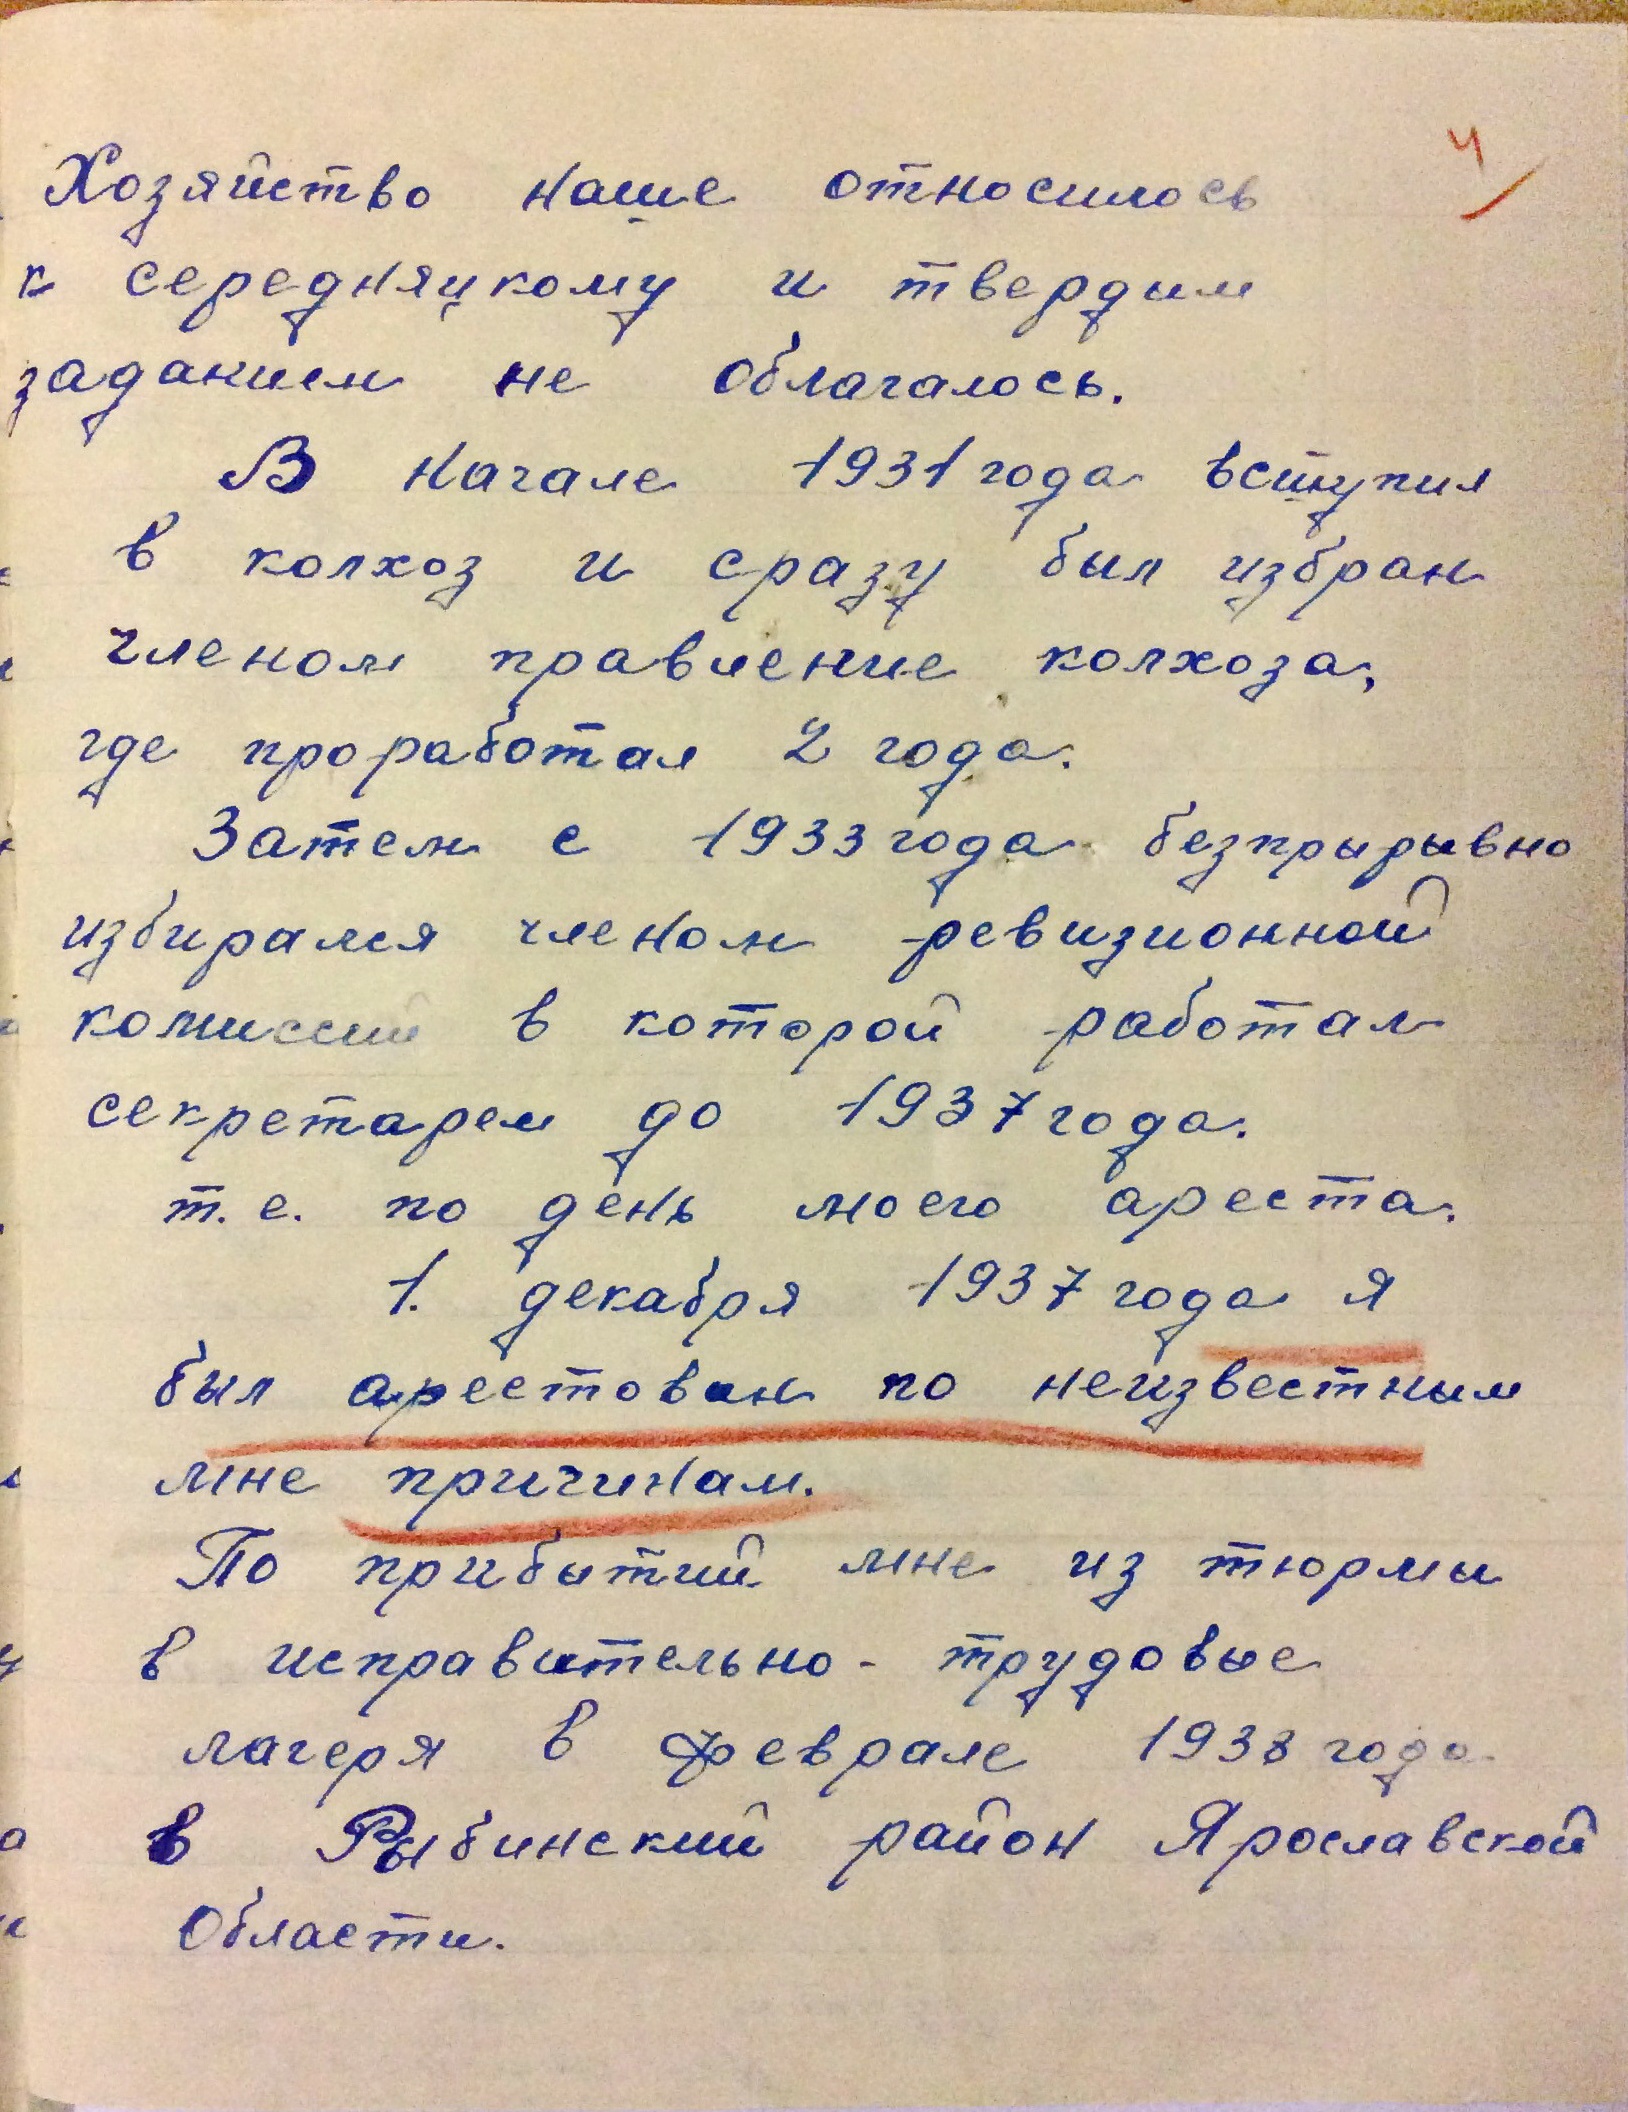 4
Хозяйство наше относилось
к середняцкому и твердым
заданием не облагалось.
В начале 1931 года вступил
в колхоз и сразу был избран
членом правление колхоза,
где проработал 2 года.
Затем с 1933 года безпрырывно
избирался членом ревизионной
комиссий в которой работал
секретарем до 1937 года.
т.е. по день моего ареста.
1. декабря 1937 года я
был арестован по неизвестным
мне причинам.
По прибытий мне из тюрмы
в исправительно-трудовые
лагеря в феврале 1938 года
в Рыбинский район Ярославской
области.